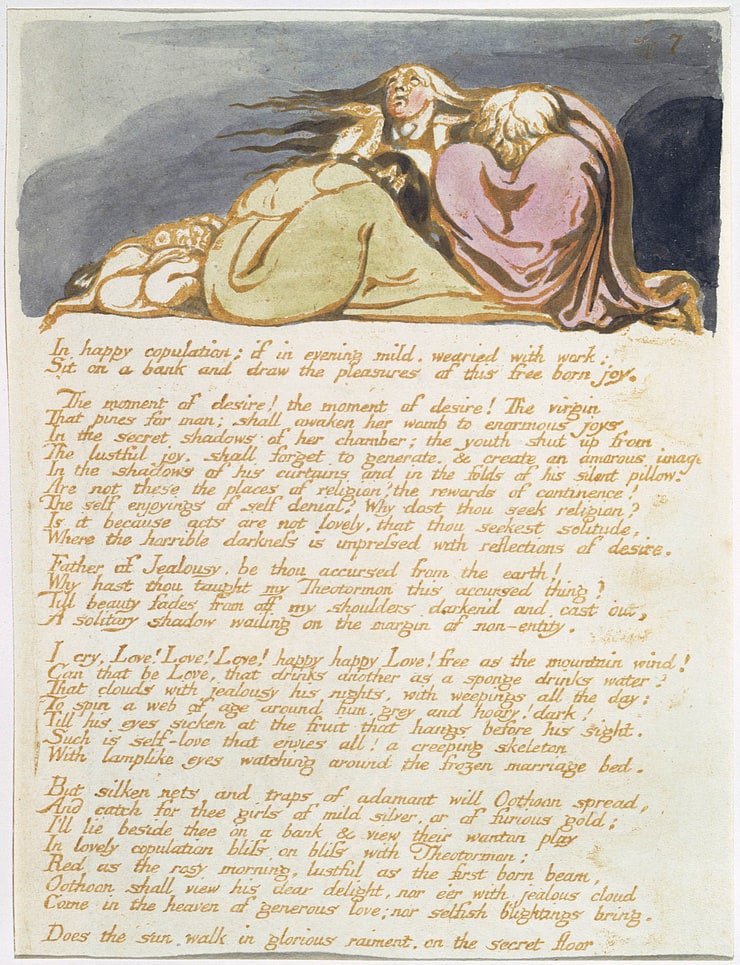 7
In happy copulation; if in evening mild. wearied with work;
Sit on a bank and draw the pleasures of this free born joy.
The moment of desire! the moment of desire! The virgin
That pines for man; shall awaken her womb to enormous joys
In the secret shadows of her chamber; the youth shut up from
The lustful joy. shall forget to generate. & create an amorous image
In the shadows of his curtains and in the folds of his silent pillow.
Are not these the places of religion? the rewards of continence!
The self enjoyings of self denial? Why dost thou seek religion?
Is it because acts are not lovely, that thou seekest solitude,
Where the horrible darkness is impressed with reflections of desire.
Father of Jealousy. be thou accursed from the earth!
Why hast thou taught my Theotormon this accursed thing?
Till beauty fades from off my shoulders darkend and cast out,
A solitary shadow wailing on the margin of non-entity.
I cry, Love! Love! Love! happy happy Love! free as the mountain wind!
Can that be Love, that drinks another as a sponge drinks water?
That clouds with jealousy his nights, with weepings all the day:
To spin a web of age around him. grey and hoary! dark!
Till his eyes sicken at the fruit that hangs before his sight.
Such is self-love that envies all! a creeping skeleton
With lamplike eyes watching around the frozen marriage bed.
But silken nets and traps of adamant will Oothoon spread,
And catch for thee girls of mild silver, or of furious gold;
I'll lie beside thee on a bank & view their wanton play
In lovely copulation bliss on bliss with Theotormon:
Red as the rosy morning, lustful as the first born beam,
Oothoon shall view his dear delight, nor e'er with jealous cloud
Come in the heaven of generous love; nor selfish blightings bring.
Does the sun walk in glorious raiment. on the secret floor